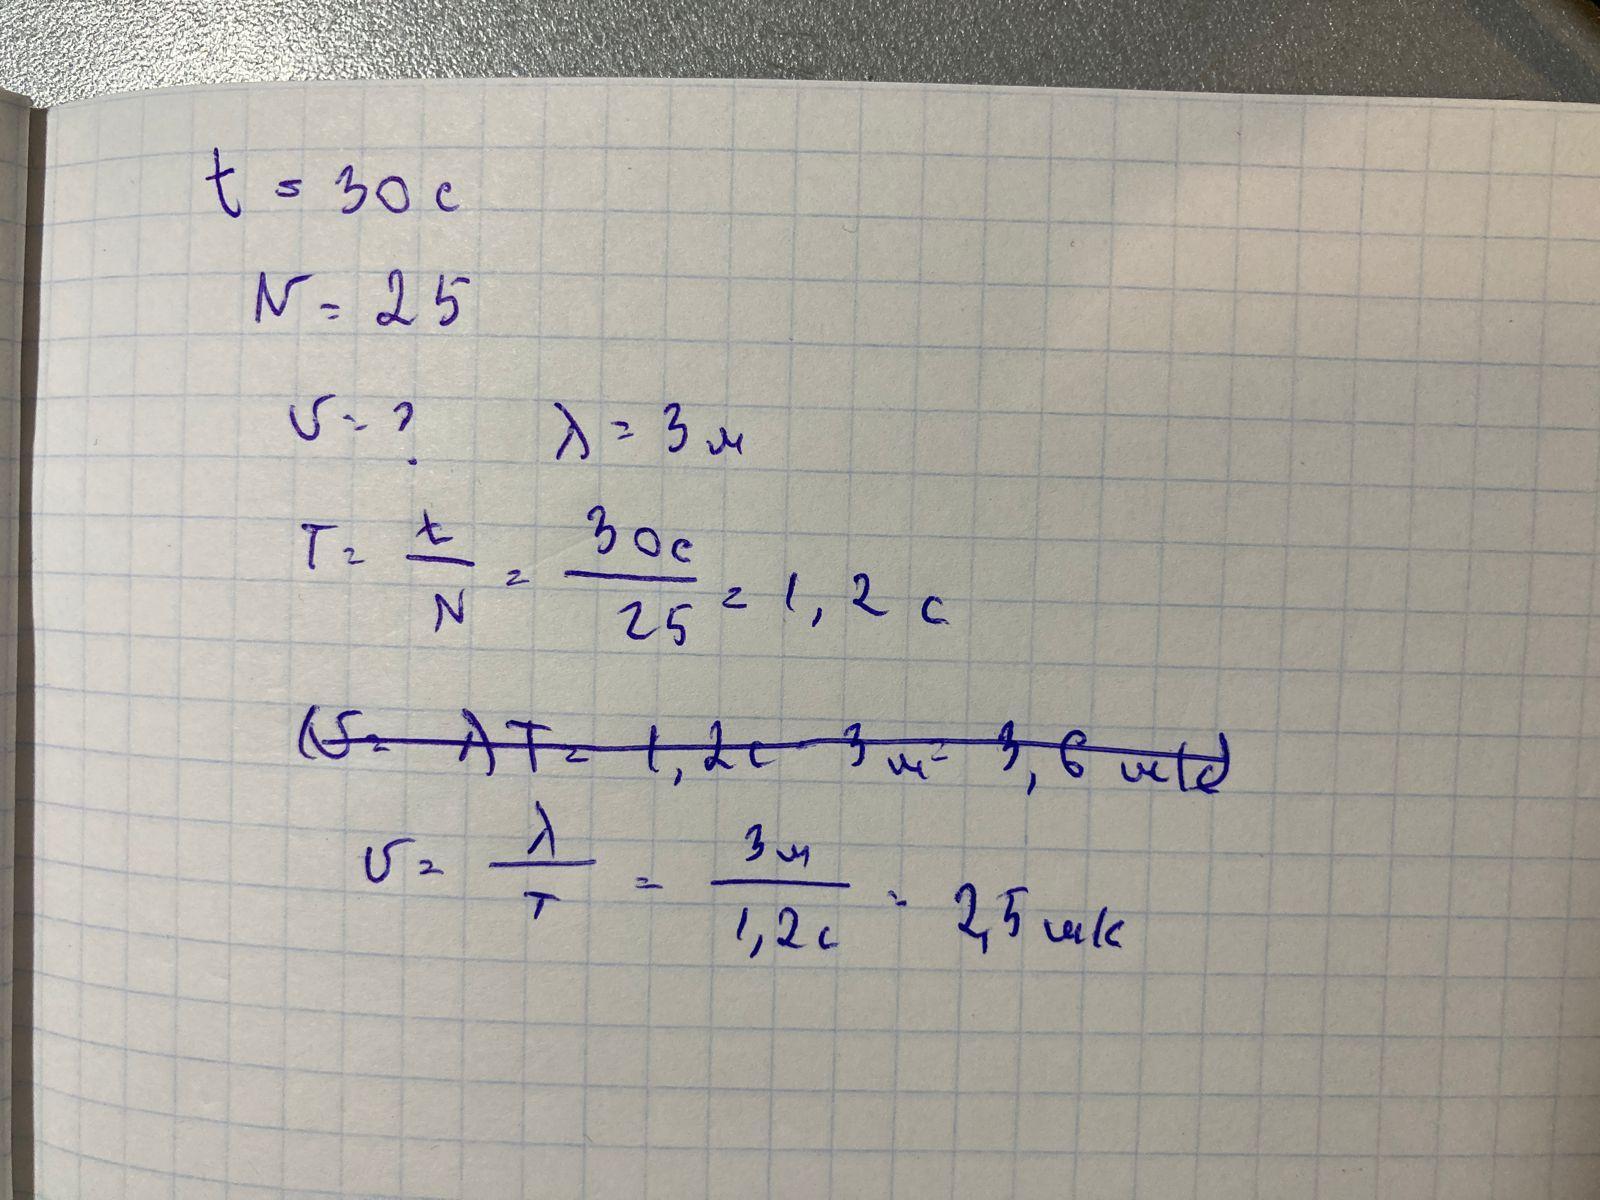 t = 30 с
N = 25
v = ? λ = 3 м
T = t/N = 30с/25 = 1,2 с
(v = λT = 1,2с · 3м = 3,6 м/с)
v = λ/T = 3м/1,2с = 2,5 м/с